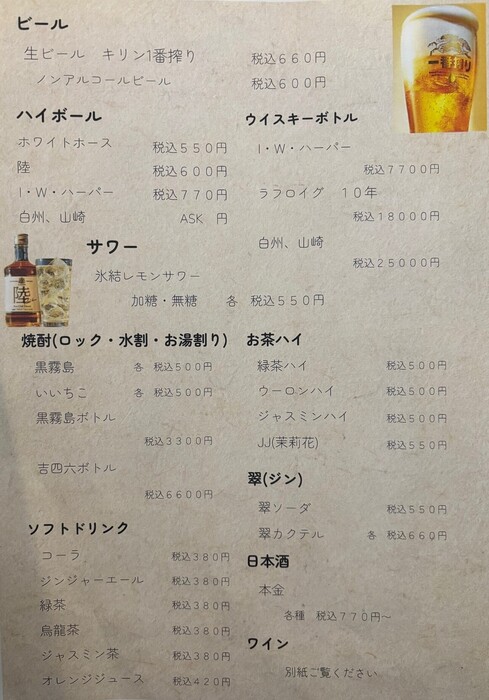 ビール
生ビール　キリン1番搾り　税込６６０円
ノンアルコールビール　税込６００円
一番搾り
ハイボール
ホワイトホース　税込５５０円
陸　税込６００円
I・W・ハーパー　税込７７０円
白州、山崎　ASK　円
ウイスキーボトル
I・W・ハーパー
税込７７００円
ラフロイグ　１０年
税込１８０００円
白州、山崎
税込２５０００円
陸
サワー
氷結レモンサワー
加糖・無糖　各　税込５５０円
焼酎(ロック・水割・お湯割り)
黒霧島　各　税込５００円
いいちこ　各　税込５００円
黒霧島ボトル
税込３３００円
吉四六ボトル
税込６６００円
お茶ハイ
緑茶ハイ　税込５００円
ウーロンハイ　税込５００円
ジャスミンハイ　税込５００円
JJ(茉莉花)　税込５５０円
翠(ジン)
翠ソーダ　税込５５０円
翠カクテル　各　税込６６０円
ソフトドリンク
コーラ　税込３８０円
ジンジャーエール　税込３８０円
緑茶　税込３８０円
烏龍茶　税込３８０円
ジャスミン茶　税込３８０円
オレンジジュース　税込４２０円
日本酒
本金
各種　税込７７０円～
ワイン
別紙ご覧ください